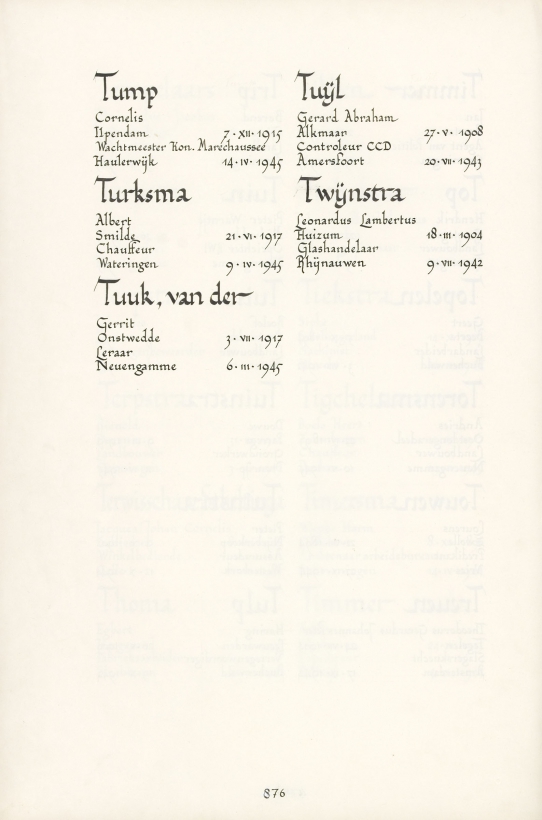 Tump
Cornelis
Ilpendam 7·XII·1915
Wachtmeester Kon. Maréchaussée
Haulerwijk 14·IV·1945
Turksma
Albert
Smilde 21·VI·1917
Chauffeur
Wateringen 9·IV·1945
Tuuk, van der
Gerrit
Onstwedde 3·VII·1917
Leraar
Neuengamme 6·III·1945
Tuÿl
Gerard Abraham
Alkmaar 27·V·1908
Controleur CCD
Amersfoort 20·VII·1943
Twÿnstra
Leonardus Lambertus
Huizum 18·III·1904
Glashandelaar
Rhÿnauwen 9·VII·1942
876